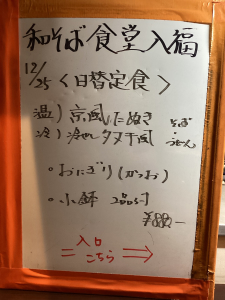 和そば食堂入福
12/25 〈日替定食〉
温）京風たぬき そば
冷）冷やしタヌキ風 うどん
・おにぎり（かつお）
・小鉢 2品付
¥880-
入口
= こちら ⇒